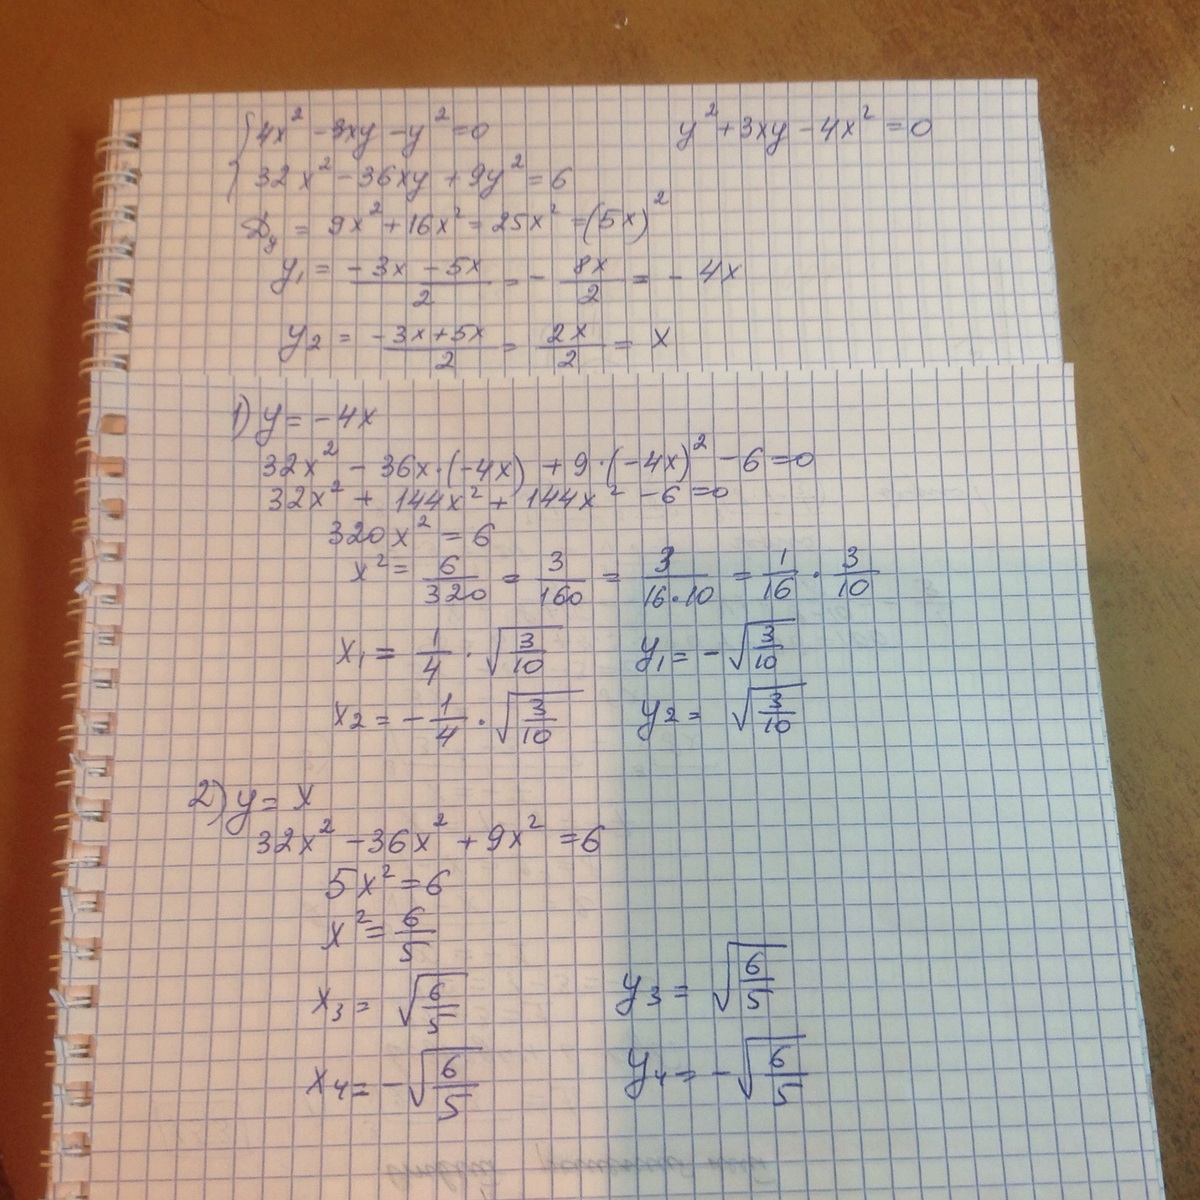 { 4x² - 3xy - y² = 0    y² + 3xy - 4x² = 0
32x² - 36xy + 9y² = 6
Dy = 9x² + 16x² = 25x² = (5x)²
y₁ = (-3x - 5x)/2 = - 8x/2 = - 4x
y₂ = (-3x + 5x)/2 = 2x/2 = x
1) y = -4x
32x² - 36x·(-4x) + 9·(-4x)² - 6 = 0
32x² + 144x² + 144x² - 6 = 0
320x² = 6
x² = 6/320 = 3/160 = 3/(16·10) = 1/16 · 3/10
x₁ = 1/4 · √(3/10)    y₁ = -√(3/10)
x₂ = -1/4 · √(3/10)    y₂ = √(3/10)
2) y = x
32x² - 36x² + 9x² = 6
5x² = 6
x² = 6/5
x₃ = √(6/5)    y₃ = √(6/5)
x₄ = -√(6/5)    y₄ = -√(6/5)